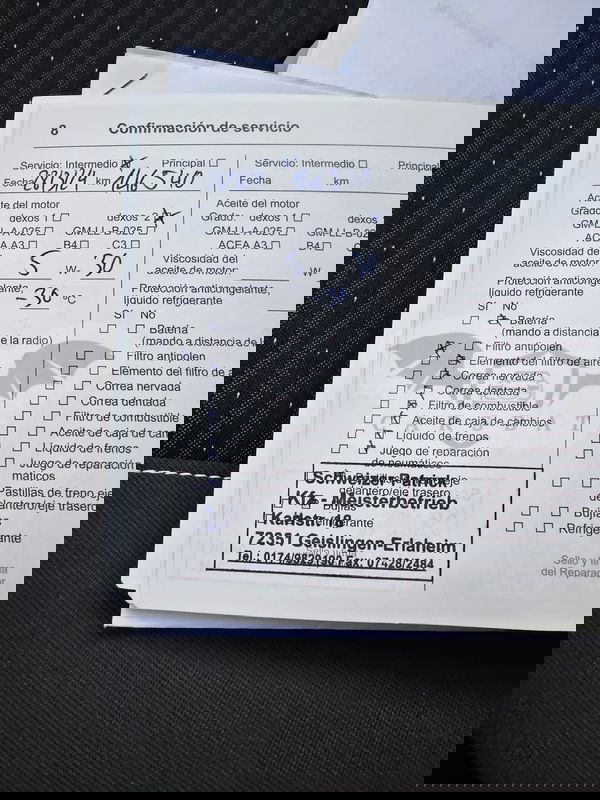 8 Confirmación de servicio
Servicio: Intermedio Principal
Fecha km
Aceite del motor
Grado: dexos 1 dexos 2
GM-LL-A-025 GM-LL-B-025
ACEA A3 B4 C3
Viscosidad del
aceite de motor 5 W 30
Protección anticongelante,
líquido refrigerante
-30 °C
Sí No
Batería
(mando a distancia de la radio)
Filtro antipolen
Elemento del filtro de aire
Correa nervada
Correa dentada
Filtro de combustible
Aceite de caja de cambios
Líquido de frenos
Juego de reparación
de neumáticos
Pastillas de freno eje
delantero/eje trasero
Bujías
Refrigerante
Sello y
del Reparador
Servicio: Intermedio Principal
Fecha km
Aceite del motor
Grado: dexos 1 dexos
GM-LL-A-025 GM-LL-B-025
ACEA A3 B4
Viscosidad del
aceite de motor W
Protección anticongelante,
líquido refrigerante
Sí No
Batería
(mando a distancia de la
Filtro antipolen
Elemento del filtro de a
Correa nervada
Correa dentada
Filtro de combustible
Aceite de caja de cam
Líquido de frenos
Juego de reparación
máticos
Pastillas de freno eje
delantero/eje trasero
Bujías
Refrigerante
Schweizer Patrick
Kfz - Meisterbetrieb
Keltstr. 18
72351 Geislingen-Erlaheim